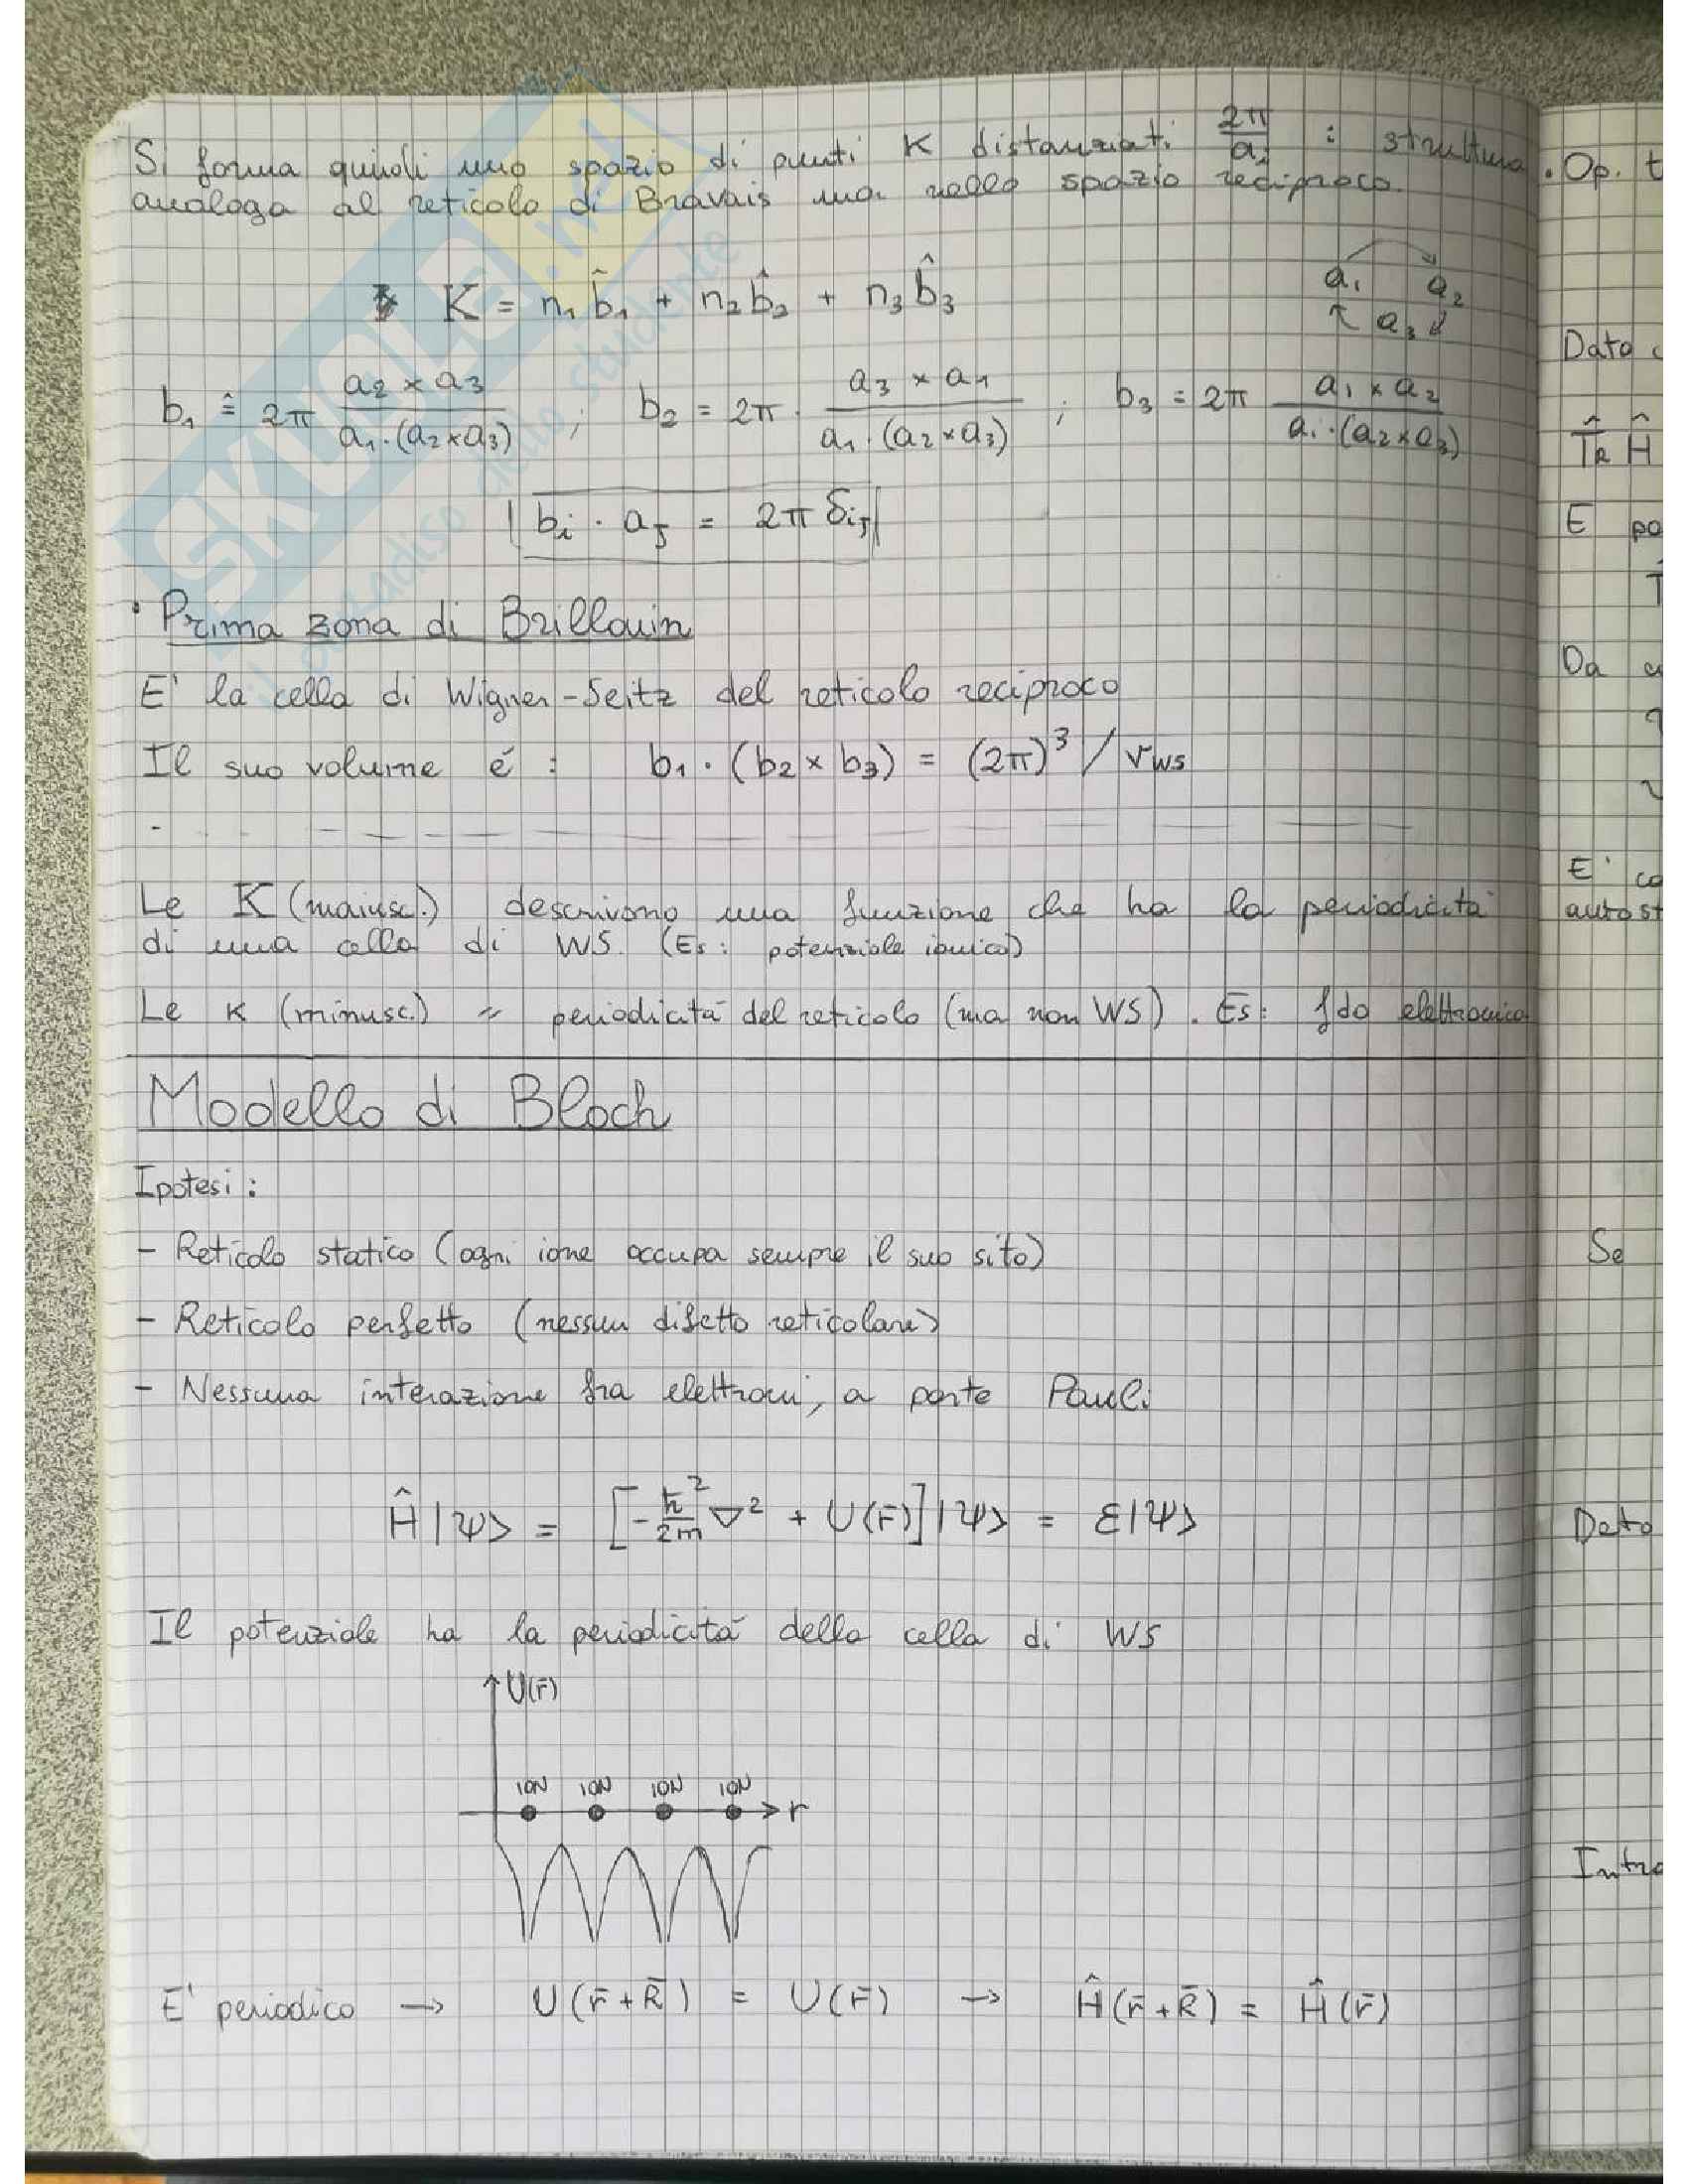 Si forma quindi uno spazio di punti K distanziati 2π/ai : struttura
analoga al reticolo di Bravais ma nello spazio reciproco.
K = n₁ b̂₁ + n₂ b̂₂ + n₃ b̂₃
a₁ a₂
a₃
b₁ = 2π (a₂ × a₃)/(a₁·(a₂×a₃)) ; b₂ = 2π · (a₃ × a₁)/(a₁·(a₂×a₃)) ; b₃ = 2π (a₁ × a₂)/(a₁·(a₂×a₃))
bi · aj = 2π δij
· Prima zona di Brillouin
E' la cella di Wigner-Seitz del reticolo reciproco
Il suo volume é : b₁ · (b₂ × b₃) = (2π)³ / Vws
Le K (maiusc.) descrivono una funzione che ha la periodicitá
di una cella di WS. (Es: potenziale ionico)
Le K (minusc.) " periodicitá del reticolo (ma non WS). Es: fdo elettronica
Modello di Bloch
Ipotesi :
- Reticolo statico (ogni ione occupa sempre il suo sito)
- Reticolo perfetto (nessun difetto reticolare)
- Nessuna interazione fra elettroni, a parte Pauli
Ĥ |Ψ> = [-ħ²/2m ∇² + U(r̄)] |Ψ> = ε|Ψ>
Il potenziale ha la periodicitá della cella di WS
U(r̄)
ION ION ION ION
r
E' periodico → U(r̄+R̄) = U(r̄) → Ĥ(r̄+R̄) = Ĥ(r̄)
· Op. t
Dato
T̂R Ĥ
E po
Da
E' co
autost
Se
Dato
Intro
SKUOLA.net
il paradiso dello studente